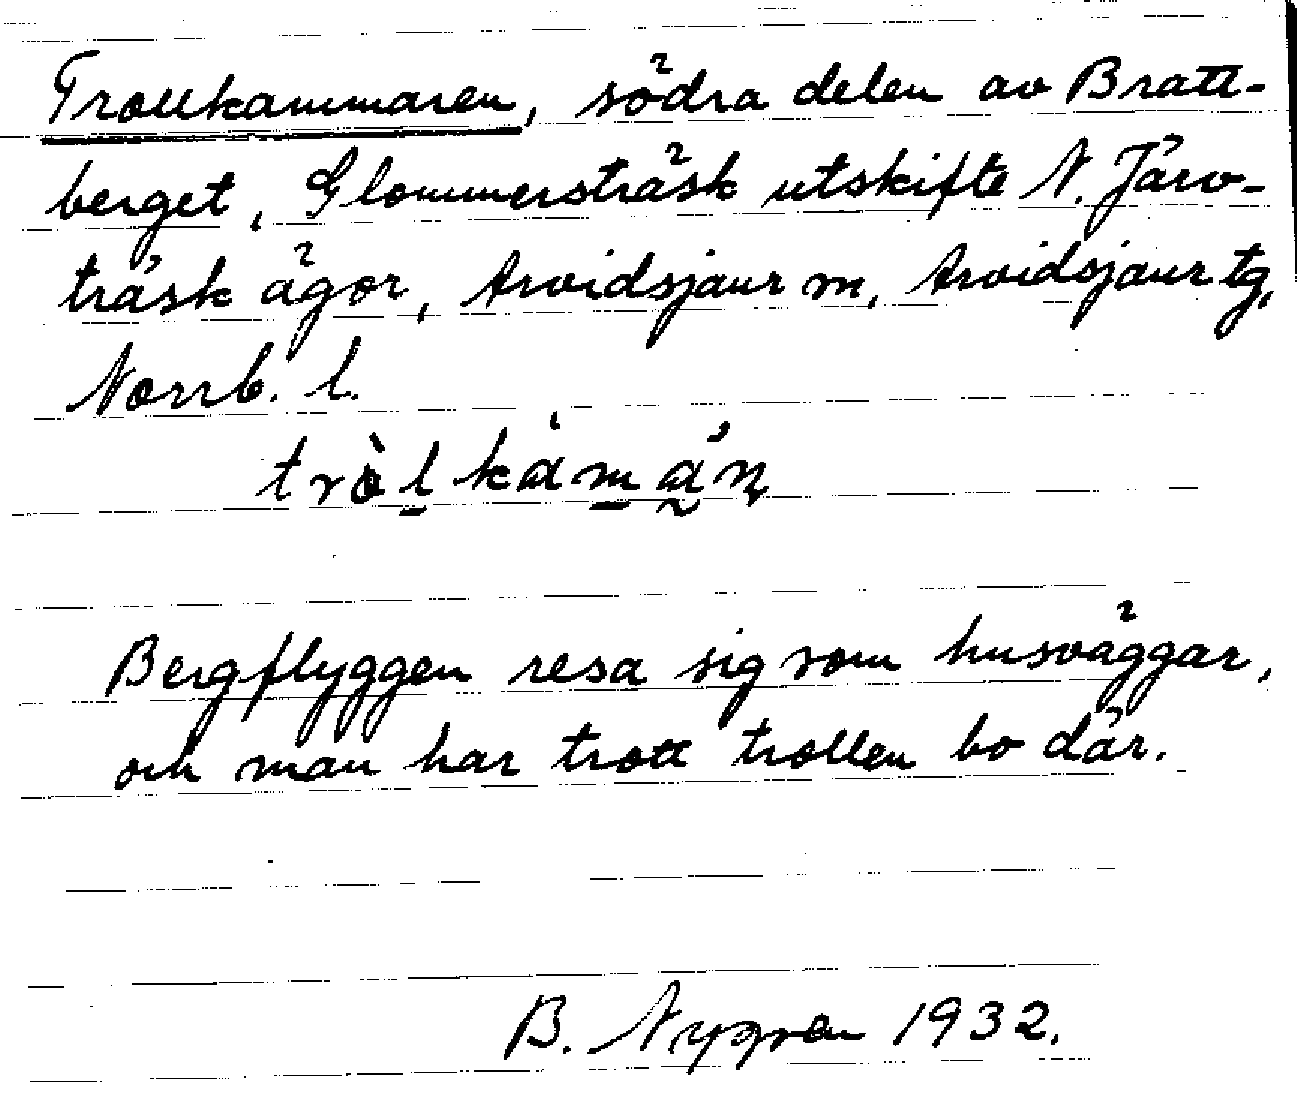 Trollkammaren, södra delen av Bratt-
berget, Glommersträsk utskifte N. Järv-
träsk ägor, Arvidsjaur sn, Arvidsjaur tg,
Norrb. l.
Bergflyggen resa sig som husväggar,
och man har trott trollen bo där.
B. Nygren 1932.